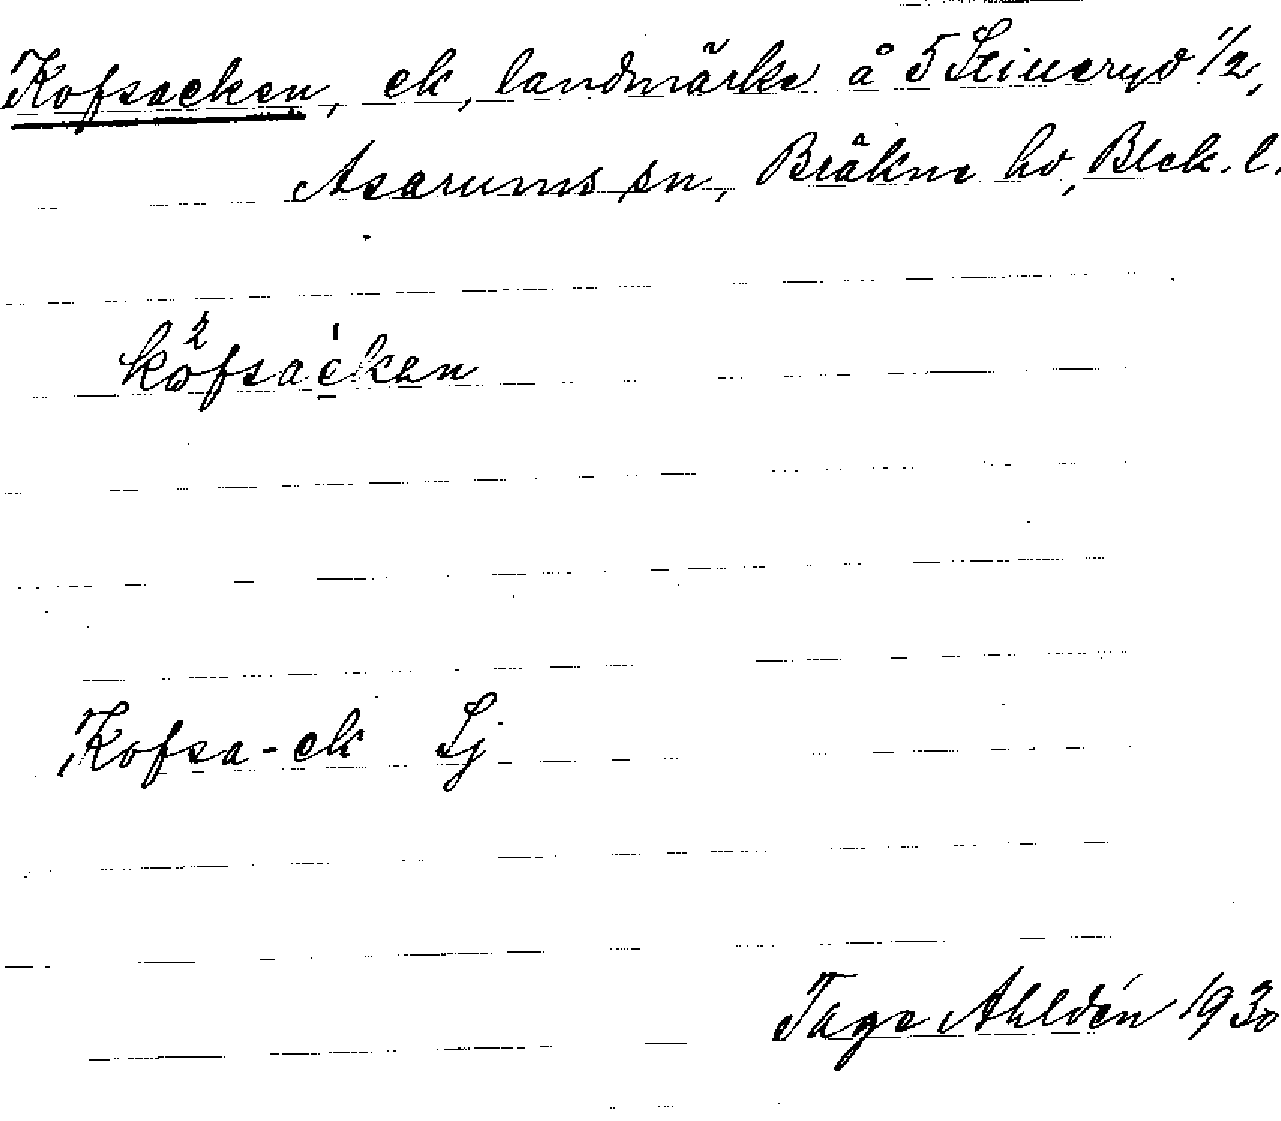 Kofsaeken, ek, landmärke å 5 Stilleryd 1/2,
Asarums sn, Bräkne hd, Blek. l.
kofsaeken
Kofsa-ek Sj
Tage Ahldén 1930